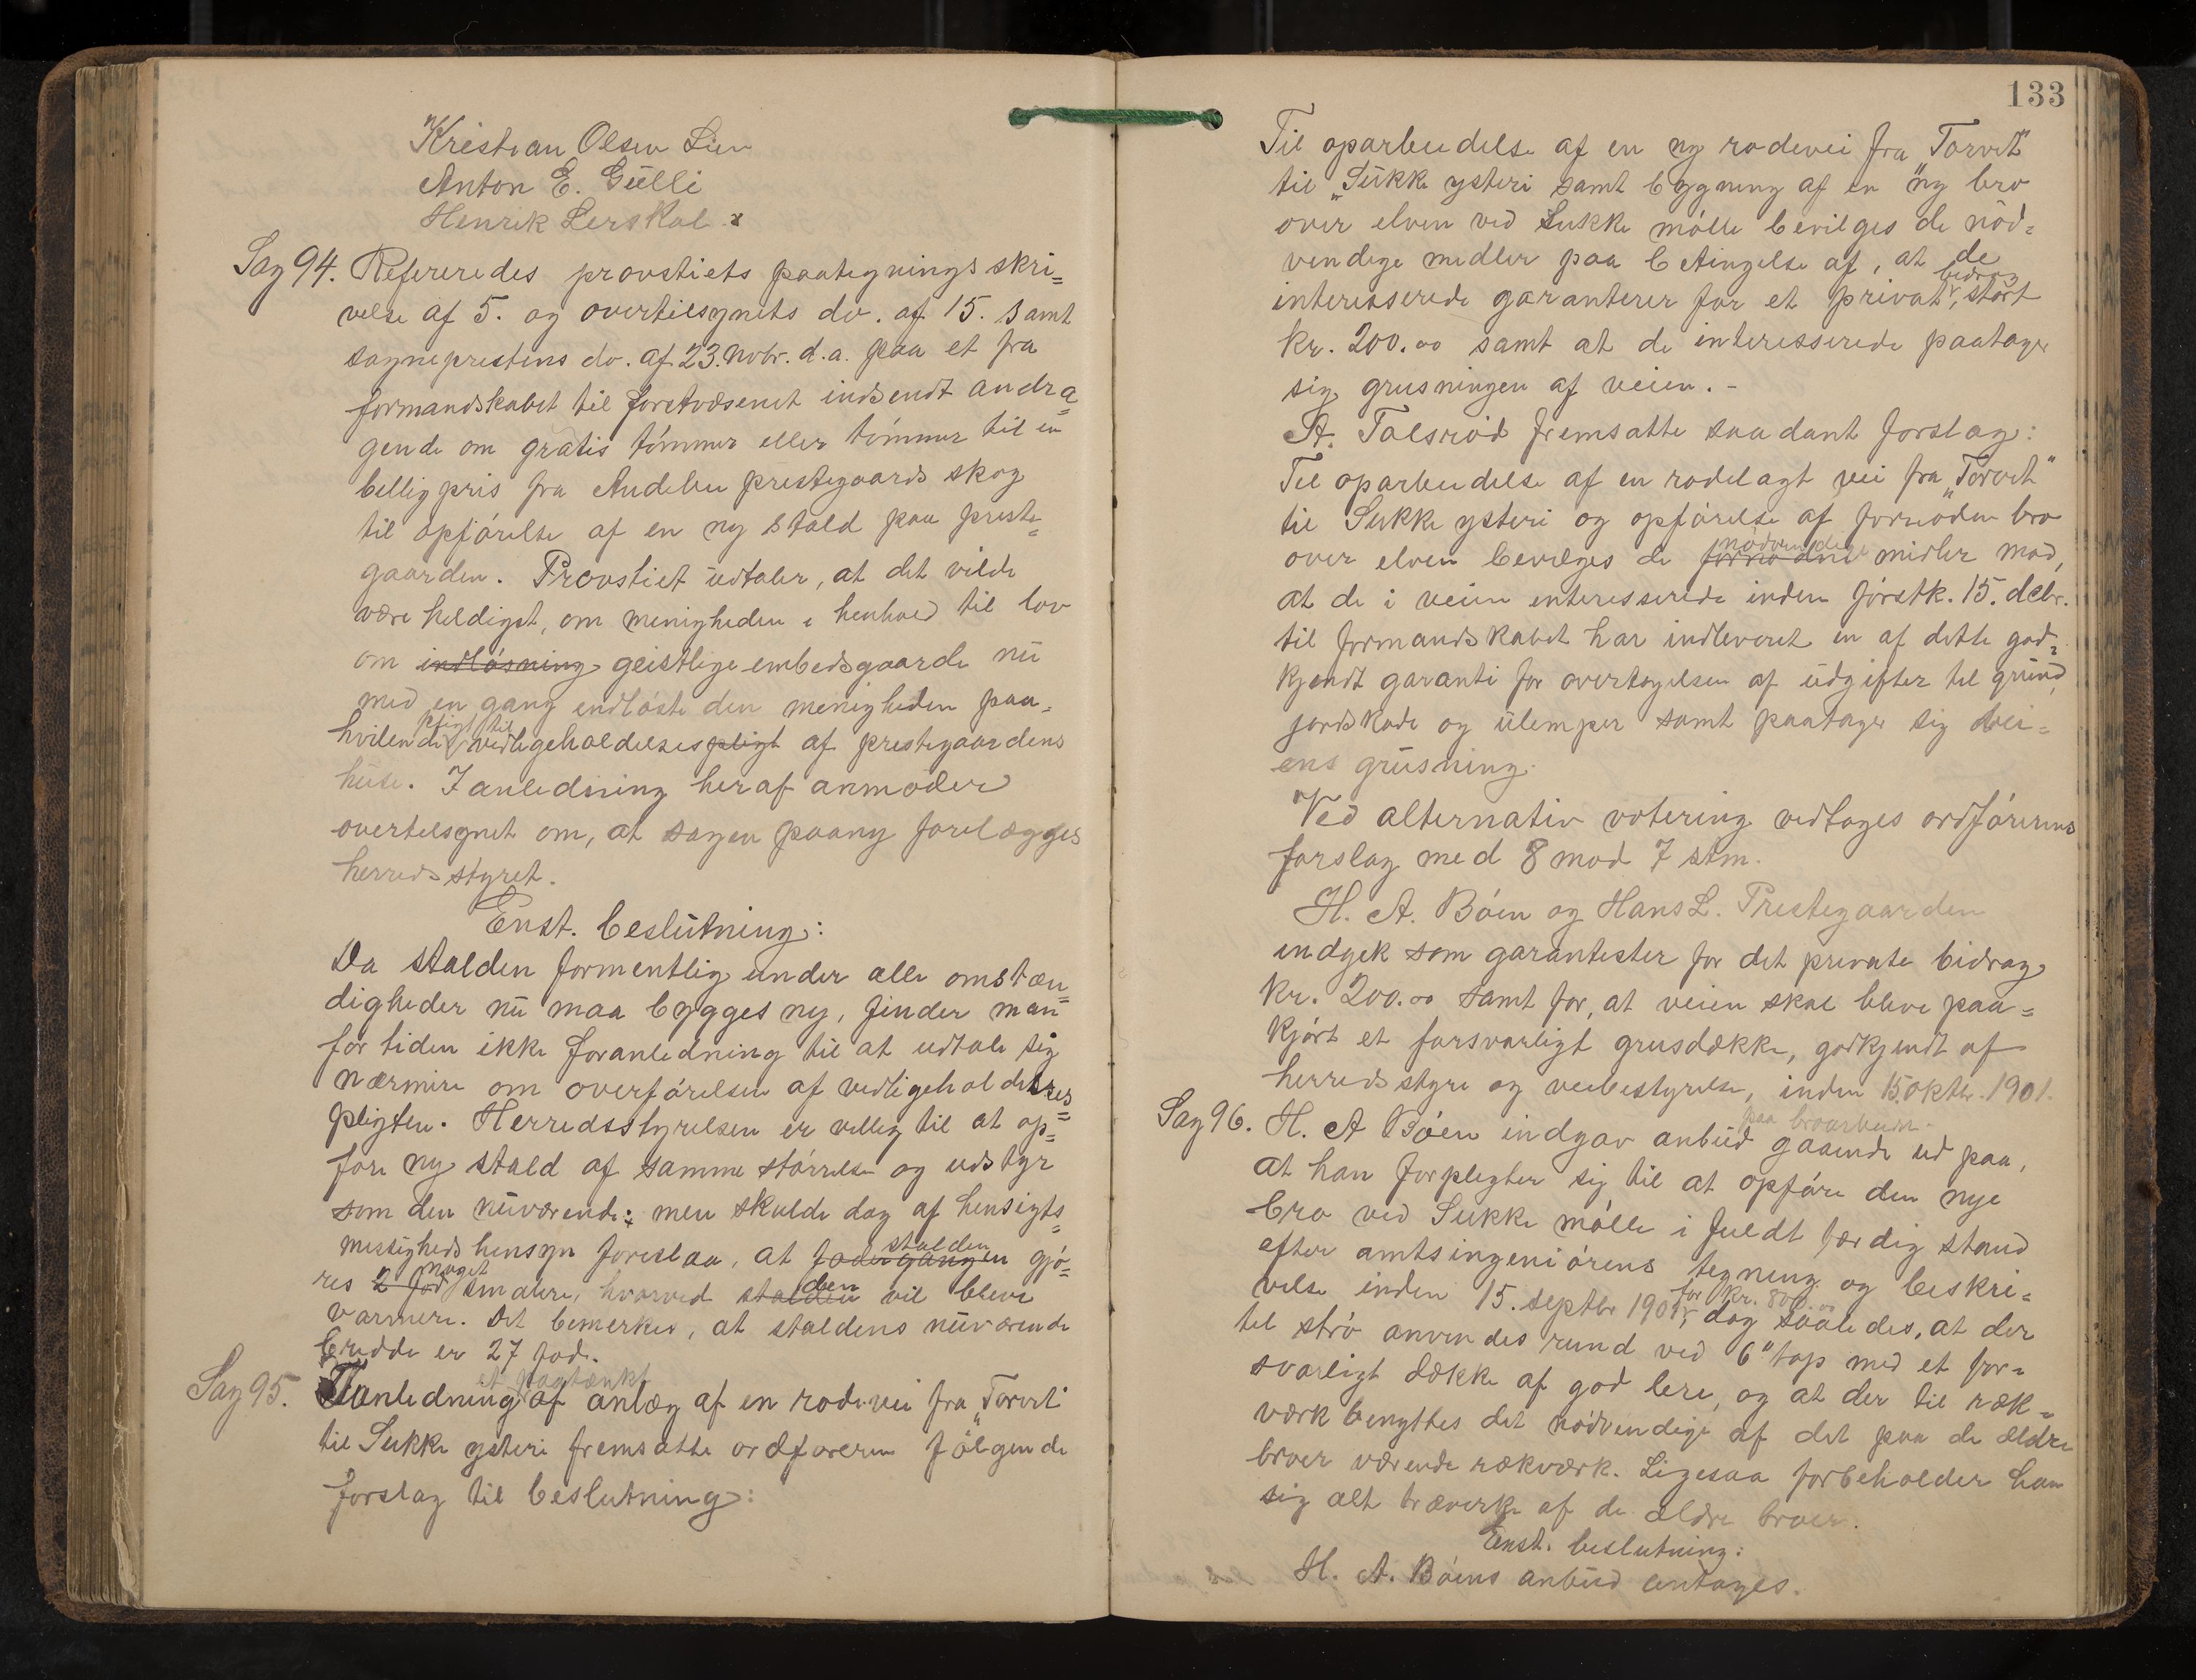 Kristian Olsen Lien
Anton E. Gulli
Henrik Lerskal.
Sag 94. Refereredes provstiets paategningsskri=
velse af 5. og overtilsynets do. af 15. samt
sogneprestens do. af 23. Novbr. d.a. paa et fra
formandskabet til forstvæsenet indsendt andra=
gende om gratis tømmer eller tømmer til en
billig pris fra Andebu prestegaards skog
til opførelse af en ny stald paa preste=
gaarden. Provstiet udtaler, at det vilde
være heldigst, om menigheden i henhold til lov
om indløsning geistlige embedsgaarde nu
med en gang indløste den menigheden paa=
hvilende pligt til vedligeholdelsespligt af prestegaardens
huse. I anledning heraf anmoder
overtilsynet om, at sagen paany forelægges
herredsstyret.
Enst. beslutning:
Da stalden formentlig under alle omstæn=
digheder nu maa bygges ny, finder man
for tiden ikke foranledning til at udtale sig
nærmere om overførelsen af vedligeholdelses=
pligten. Herredsstyrelsen er villig til at op=
føre ny stald af samme størrelse og udstyr
som den nuværende; men skulde dog af hensigts=
messighedshensyn foreslaa, at fodergangen stalden gjø=
res 2 fod noget smalere, hvorved stalden den vil blive
varmere. Det bemerkes, at staldens nuværende
bredde er 27 fod.
Sag 95. I anledning af et paatænkt anlæg af en rodevei fra „Torvet"
til Sukke ysteri fremsatte ordføreren følgende
forslag til beslutning:
133
Til oparbeidelse af en ny rodevei fra „Torvet"
til „Sukke ysteri samt bygning af en ny bro
over elven ved Sukke mølle bevilges de nød=
vendige midler paa betingelse af, at de
interesserede garanterer for et privat bidrag, stort
kr. 200.00 samt at de interesserede paatager
sig grusningen af veien. -
A. Tolsrød fremsatte saadant forslag:
Til oparbeidelse af en rodelagt vei fra „Torvet"
til Sukke ysteri og opførelse af fornøden bro
over elven bevilges de fornødne nødvendige midler mod,
at de i veien interesserede inden førstk. 15. debr.
til formandskabet har indleveret en af dette god=
kjendt garanti for overtagelsen af udgifter til grund,
jordskade og ulemper samt paatager sig vei=
ens grusning.
Ved alternativ votering vedtages ordførerens
forslag med 8 mod 7 stm.
H. A. Bøen og Hans L. Prestegaarden
indgik som garantister for det private bidrag
kr. 200.00 samt for, at veien skal blive paa=
kjørt et forsvarligt grusdække, godkjendt af
herredsstyre og veibestyrelse, inden 15. oktbr. 1901.
Sag 96. H. A Bøen indgav anbud paa broarbeidet gaaende ud paa,
at han forpligter sig til at opføre den nye
bro ved Sukke mølle i fuldt færdig stand
efter amtsingeniørens tegning og beskri=
velse inden 15. septbr 1901 for kr. 800.00, dog saaledes, at der
til strø anvendes rund ved 6" top med et for=
svarligt dække af god lere, og at der til ræk=
værk benyttes det nødvendige af det paa de ældre
broer værende rækværk. Ligesaa forbeholder han
sig alt træverk af de ældre broer.
Enst. beslutning:
H. A. Bøens anbud antages.